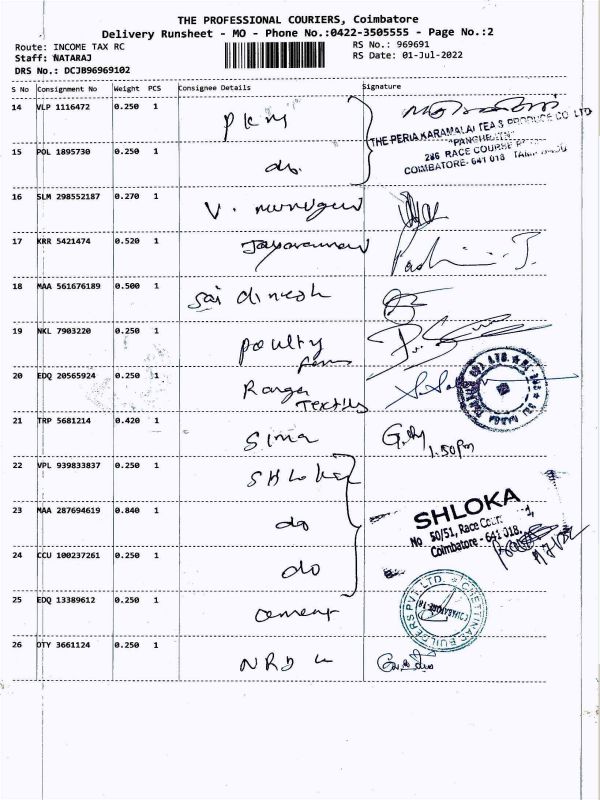 THE PROFESSIONAL COURIERS, Coimbatore
Delivery Runsheet - MO - Phone No.:0422-3505555 - Page No.:2
Route: INCOME TAX RC
RS No.: 969691
Staff: NATARAJ
RS Date: 01-Jul-2022
DRS No.: DCJB96969102
S No Consignment No Weight PCS Consignee Details Signature
14 VLP 1116472 0.250 1
THE PERIA KARAMALAI TEA & PRODUCE CO LTD
286 RACE COURSE
COIMBATORE- 641 018
15 POL 1895730 0.250 1 do
16 SLM 298552187 0.270 1 V. murugan
17 KRR 5421474 0.520 1 Jayaraman
18 MAA 561676189 0.500 1 Sai dinesh
19 NKL 7903220 0.250 1 poultry
20 EDQ 20565924 0.250 1 Ranga
Textiles
21 TRP 5681214 0.420 1 Sima 1.50pm
22 VPL 939833837 0.250 1 SHLoka
23 MAA 287694619 0.840 1 do
SHLOKA
No 50/51, Race
Coimbatore - 641 018.
24 CCU 100237261 0.250 1 do
25 EDQ 13389612 0.250 1 cement
CHETTINAD BUILDERS PVT LTD.
26 OTY 3661124 0.250 1